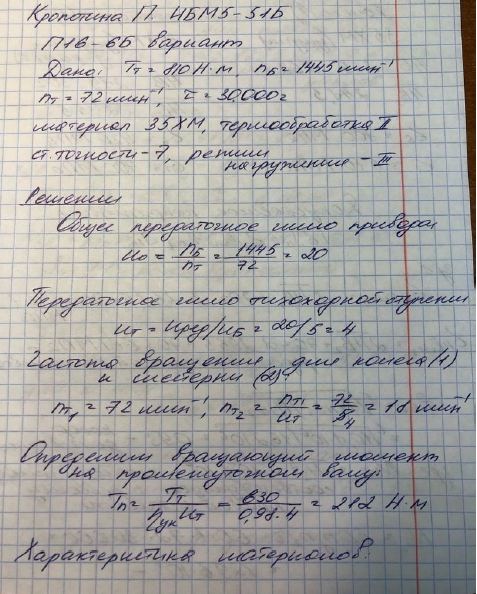 Кропотина П. ЧБМ5-51Б
П16-6Б вариант
Дано: Tт = 810 Н·м, nб = 1445 мин⁻¹
nт = 72 мин⁻¹, τ = 30.000 г
материал 35ХМ, термообработка II
ст. точности - 7, режим
нагружения - III
Решении
Общее передаточное число привода
Uo = nб/nт = 1445/72 = 20
Передаточное число тихоходной ступени
Uт = Uред/Uб = 20/5 = 4
Частота вращения для колеса (1)
и шестерни (2):
nт₁ = 72 мин⁻¹, nт₂ = nт₁/Uт = 72/4 = 18 мин⁻¹
Определим вращающий момент
на промежуточном валу:
Tп = Tт/ηцук Uт = 830/0,98·4 = 212 Н·м
Характеристика материалов: